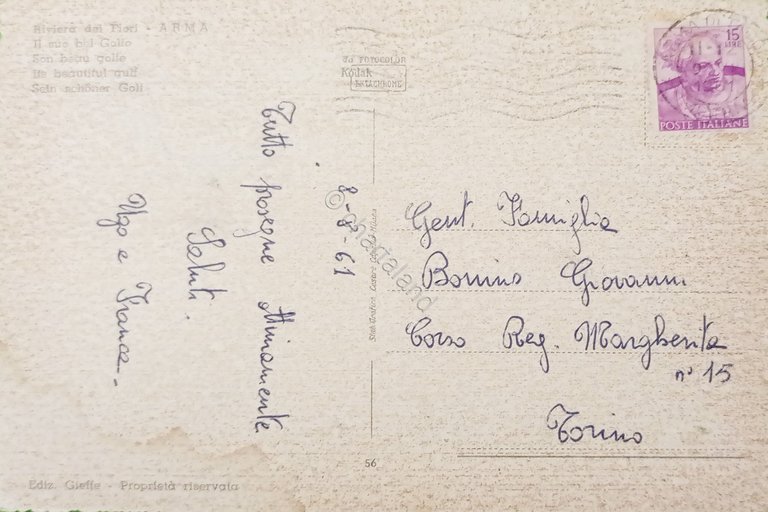 Riviera dei Fiori - ARMA
Il suo bel Golfo
Son beau golfe
Its beautiful gulf
Sein schöner Golf
Da FOTOCOLOR
Kodak
EKTACHROME
15
LIRE
POSTE ITALIANE
8-8-61
Tutto prosegue ottimamente
Saluti.
Ugo e Franca.
© chartaland
Gent. Famiglia
Bonino Giovanni
Corso Reg. Margherita
n° 15
Torino
56
Ediz. Gieffe - Proprietà riservata